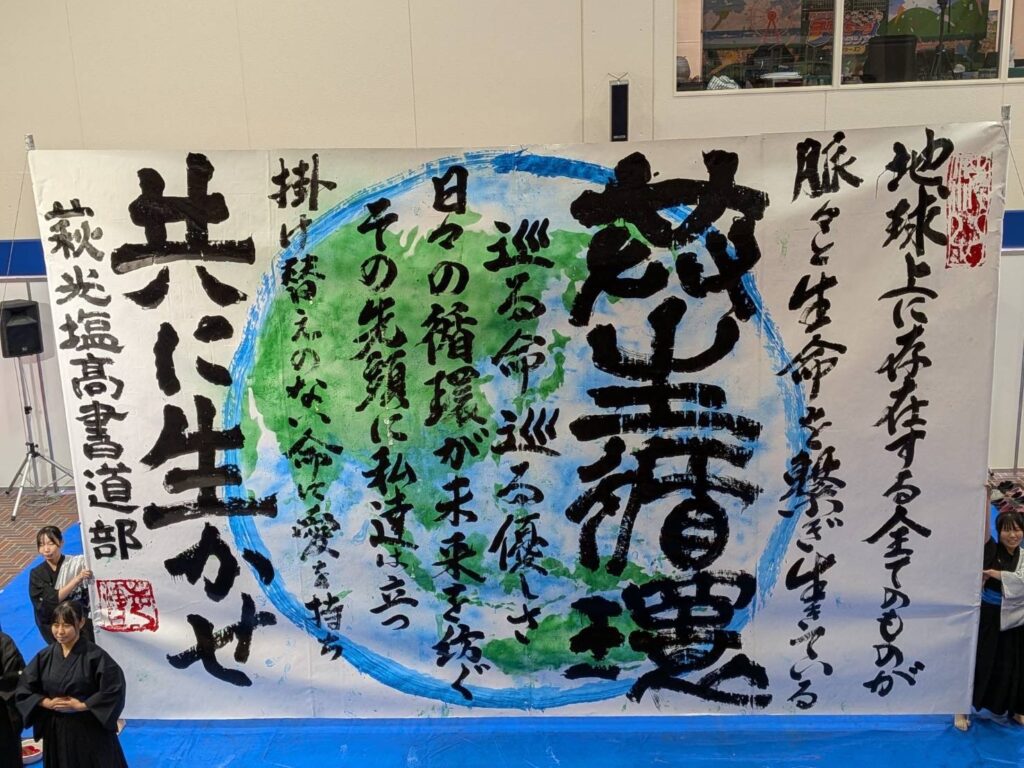 地球上に存在する全てのものが
脈々と生命を繋ぎ生きている
生循環
巡る命 巡る優しさ
日々の循環が未来を紡ぐ
その先頭に私達は立つ
掛け替えのない命に愛を持ち
共に生かせ
萩光塩高書道部